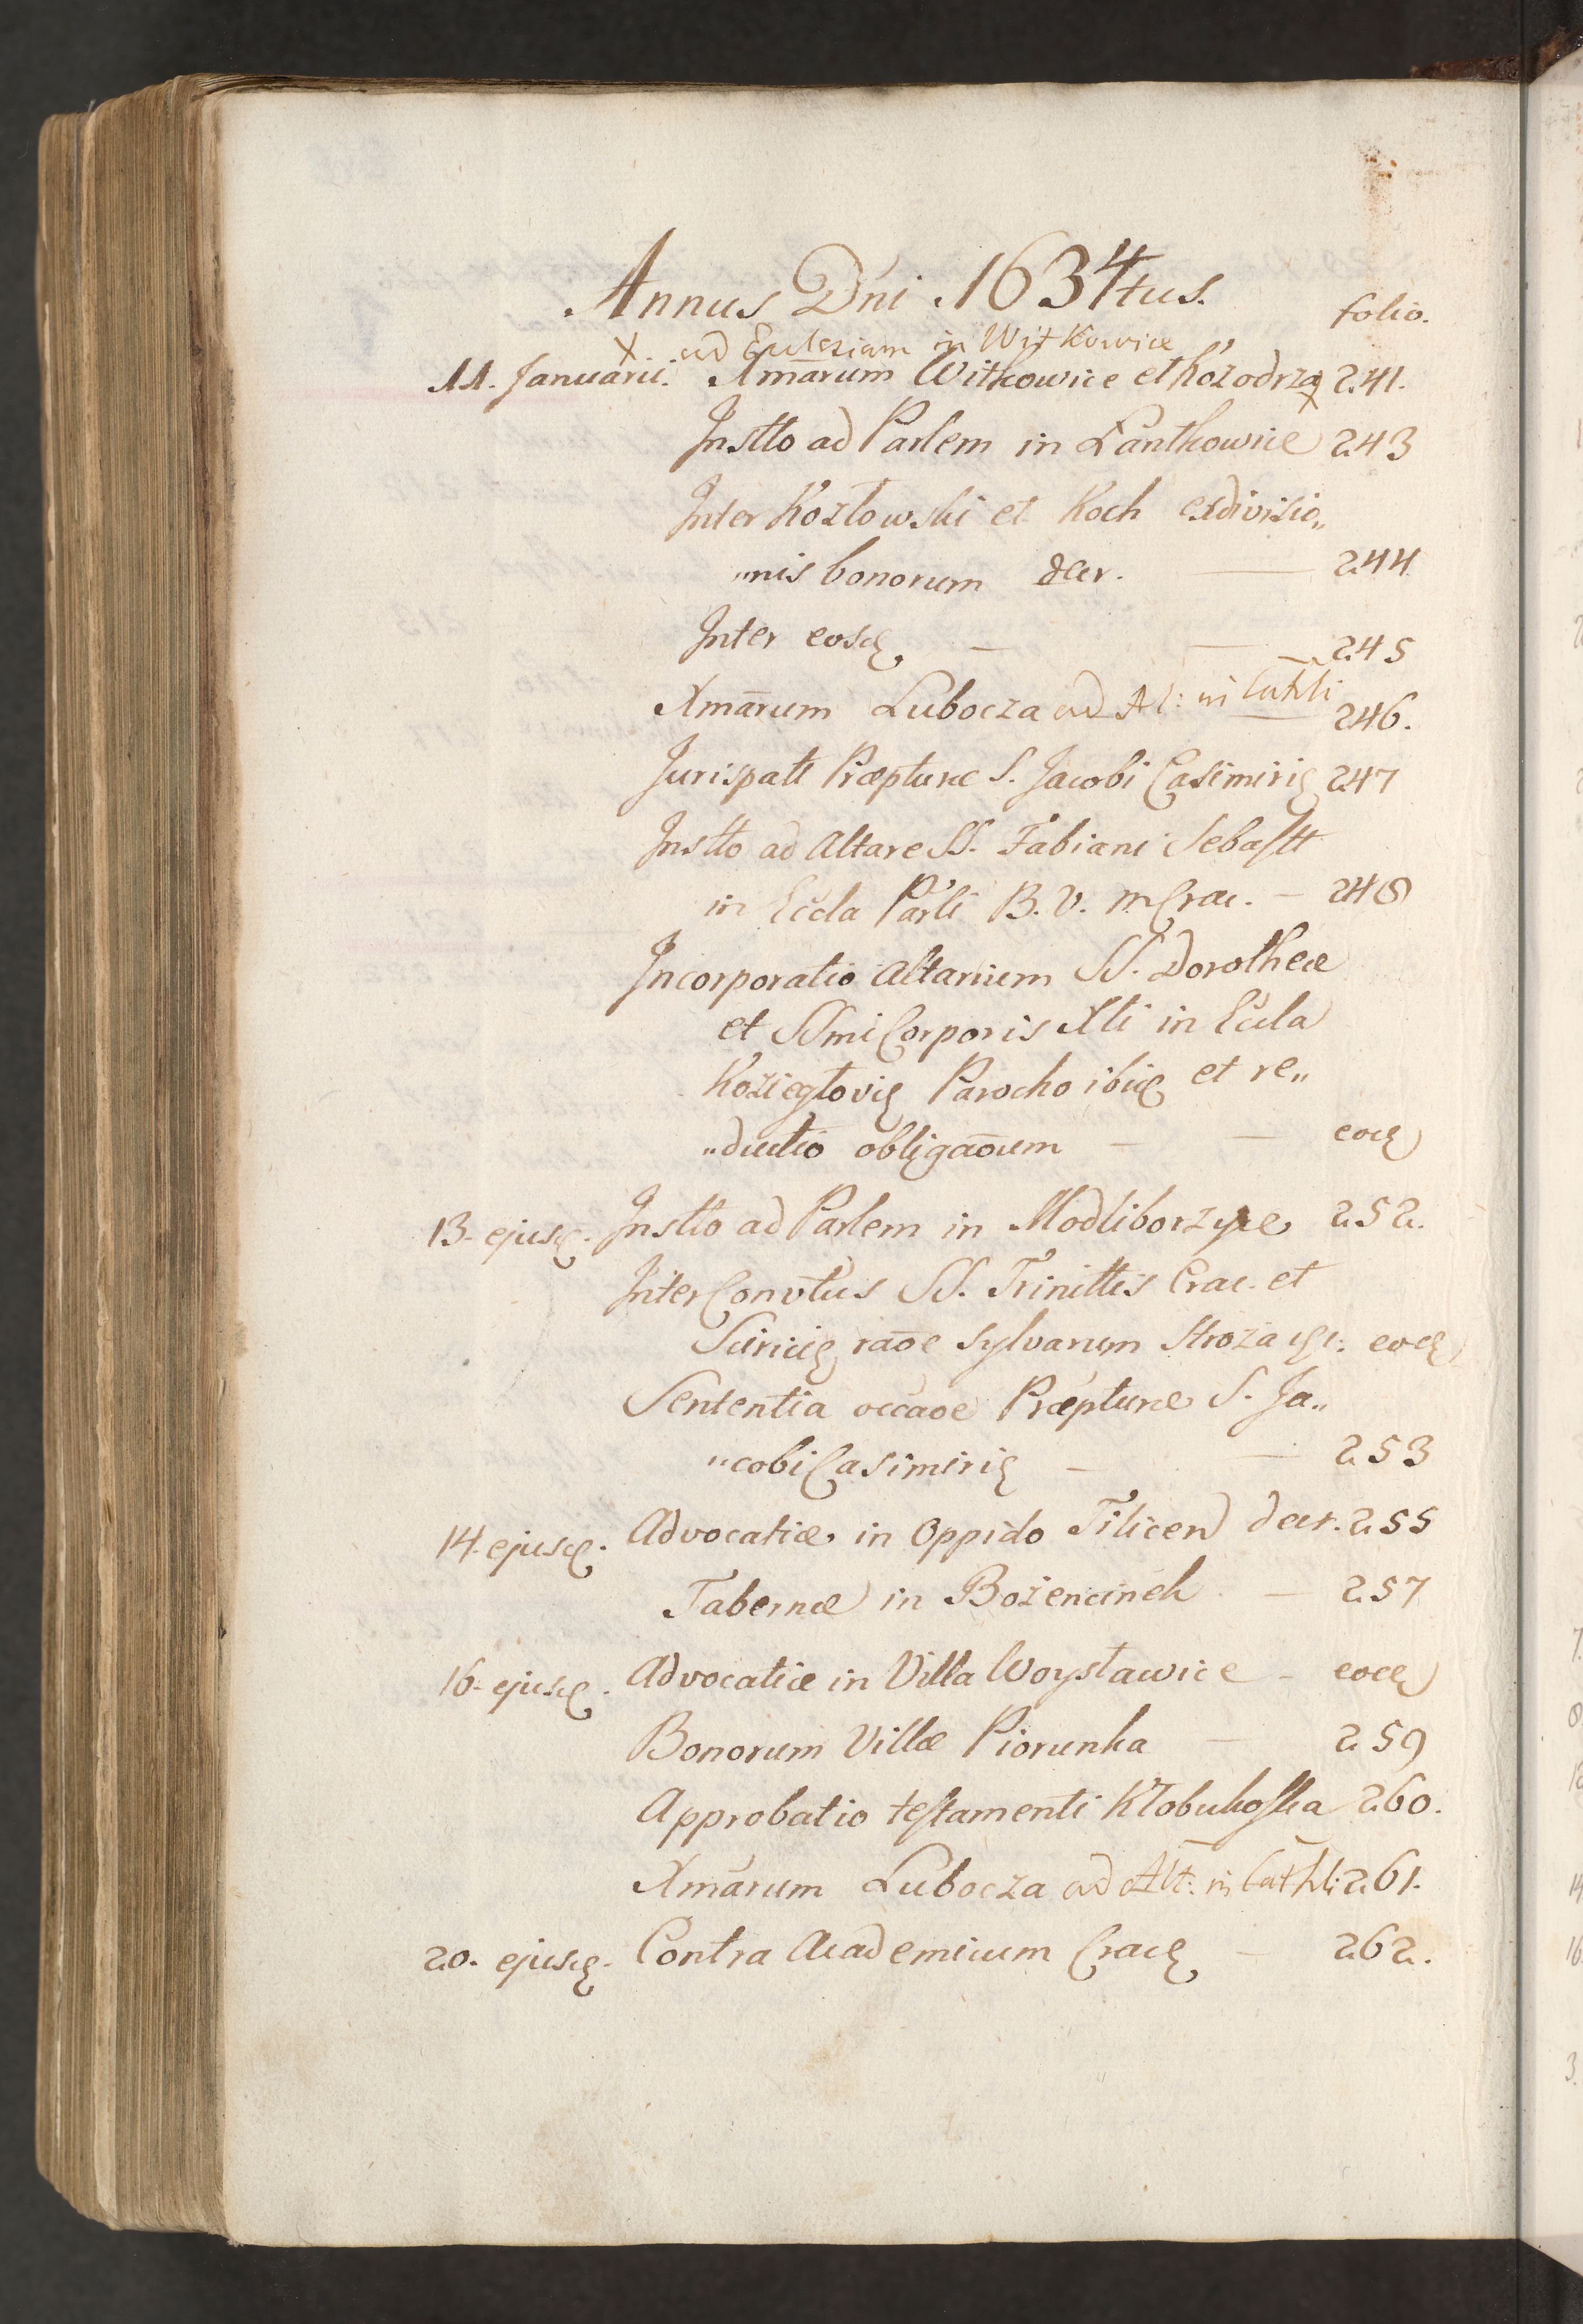 Annus Dni 1634tus.
folio.
X ad Eulesiam in Witkowice
11. Januarii. Xmārum Witkowice et Kozodrza X 241.
Instto ad Parlem in Lantkowice 243
Inter Kozłowski et Koch exdivisio„
„nis bonorum dcer. — 244
Inter eosdȩ — — 245
Xmārum Lubocza ad Al: in Cathli — 246.
Jurispatt Præpturæ S. Jacobi Casimirię 247
Instto ad Altare SS. Fabiani Sebastt
in Eccla Parli B. V. m Crac. — 248
Incorporatio Altarium SS. Dorotheæ
et SSmi Corporis Xti in Eccla
Koziegłovię Parocho ibidę et re„
„ductio obligaōum — — eodę
13. ejusdę. Instto ad Parlem in Modliborzyce 252.
Inter Convtus SS. Trinittis Crac. et
raōe sylvarum Stroza eodę
Sententia occaōe Præpturæ S. Ja„
„cobi Casimirię — — 253
14. ejusdę. Advocatiæ in Oppido Tilicen decr. 255
Tabernæ in Bożencineh — 257
16. ejusdę. Advocatiæ in Villa Woysławice — eodę
Bonorum Villæ Piorunka — 259
Approbatio testamenti Kłobukoska 260.
Xmārum Lubocza ad Alt: in Cathli 261.
20. ejusdę. Contra Academicum Cracę — 262.